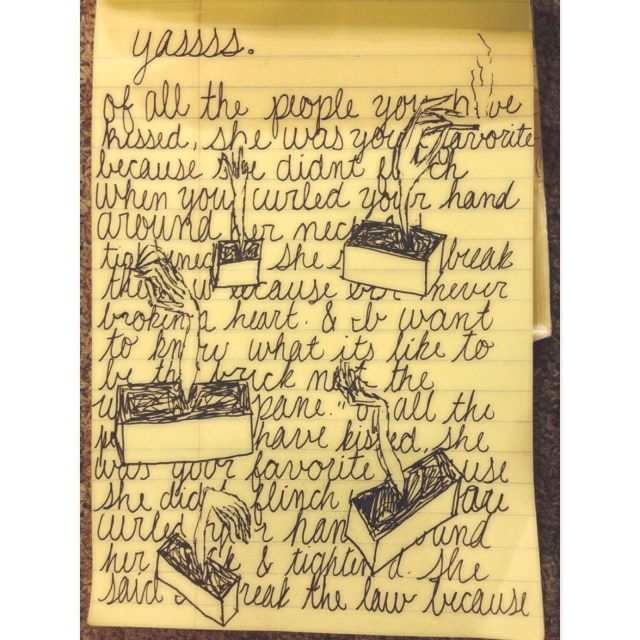 yassss.
of all the people you h ve
kissed, she was your favorite
because s e didnt fl ch
when you curled your hand
around er nec
tig ned she s break
the w ecause ive never
broken a heart. & ib want
to know what its like to
be th brick not the
pane." of all the
have kissed, she
was your favorite use
she didn flinch
curled y r han ound
her k & tighten d. she
said reak the law because